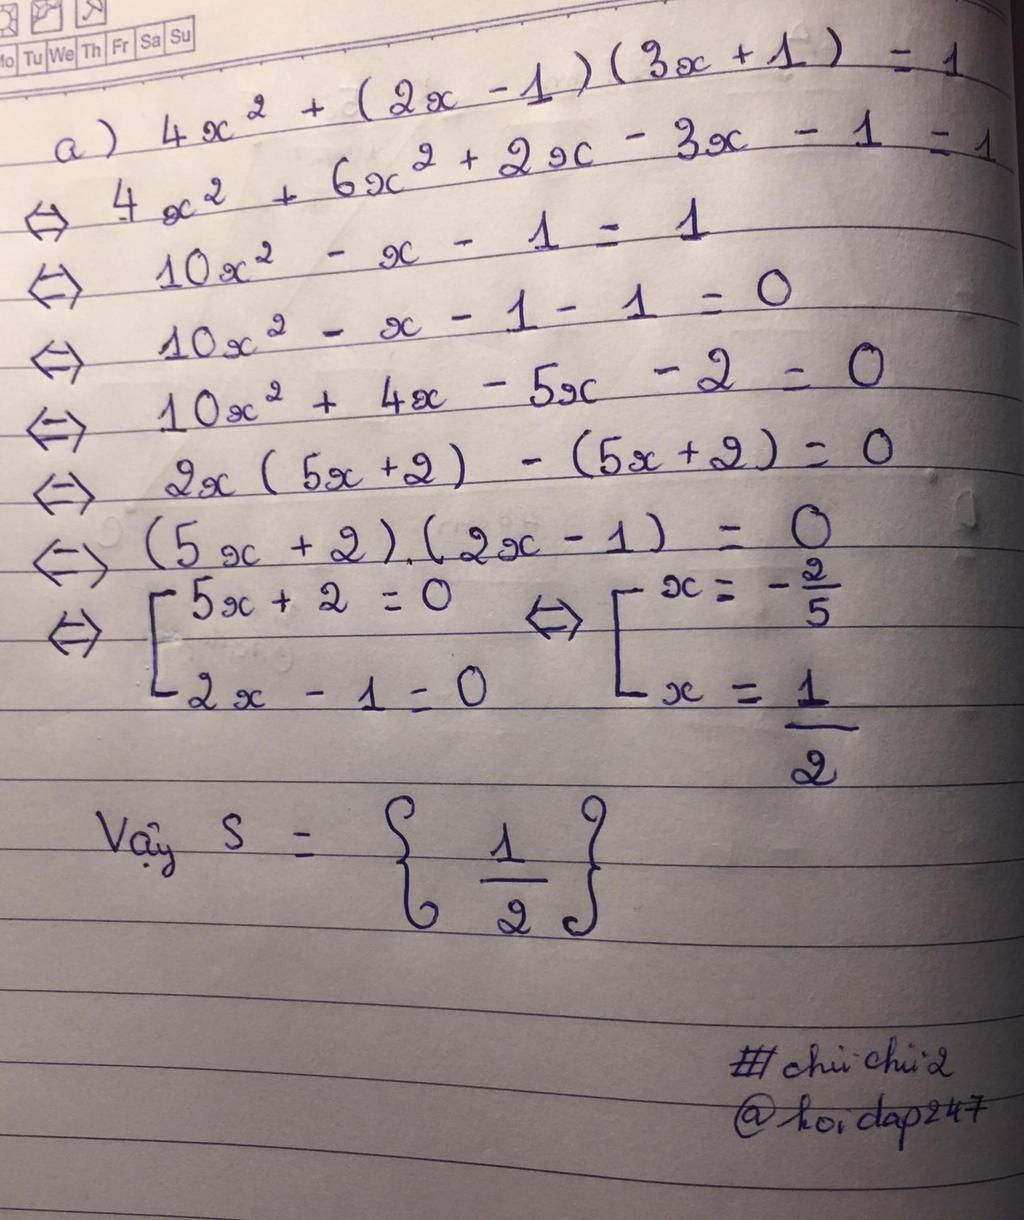 Mo Tu We Th Fr Sa Su
a) 4x² + (2x - 1)(3x + 1) = 1
⇔ 4x² + 6x² + 2x - 3x - 1 = 1
⇔ 10x² - x - 1 = 1
⇔ 10x² - x - 1 - 1 = 0
⇔ 10x² + 4x - 5x - 2 = 0
⇔ 2x (5x + 2) - (5x + 2) = 0
⇔ (5x + 2).(2x - 1) = 0
⇔ [ 5x + 2 = 0 ⇔ [ x = -2/5
2x - 1 = 0 x = 1/2
Vậy S = { 1/2 }
#chuchu2
@hoidap247